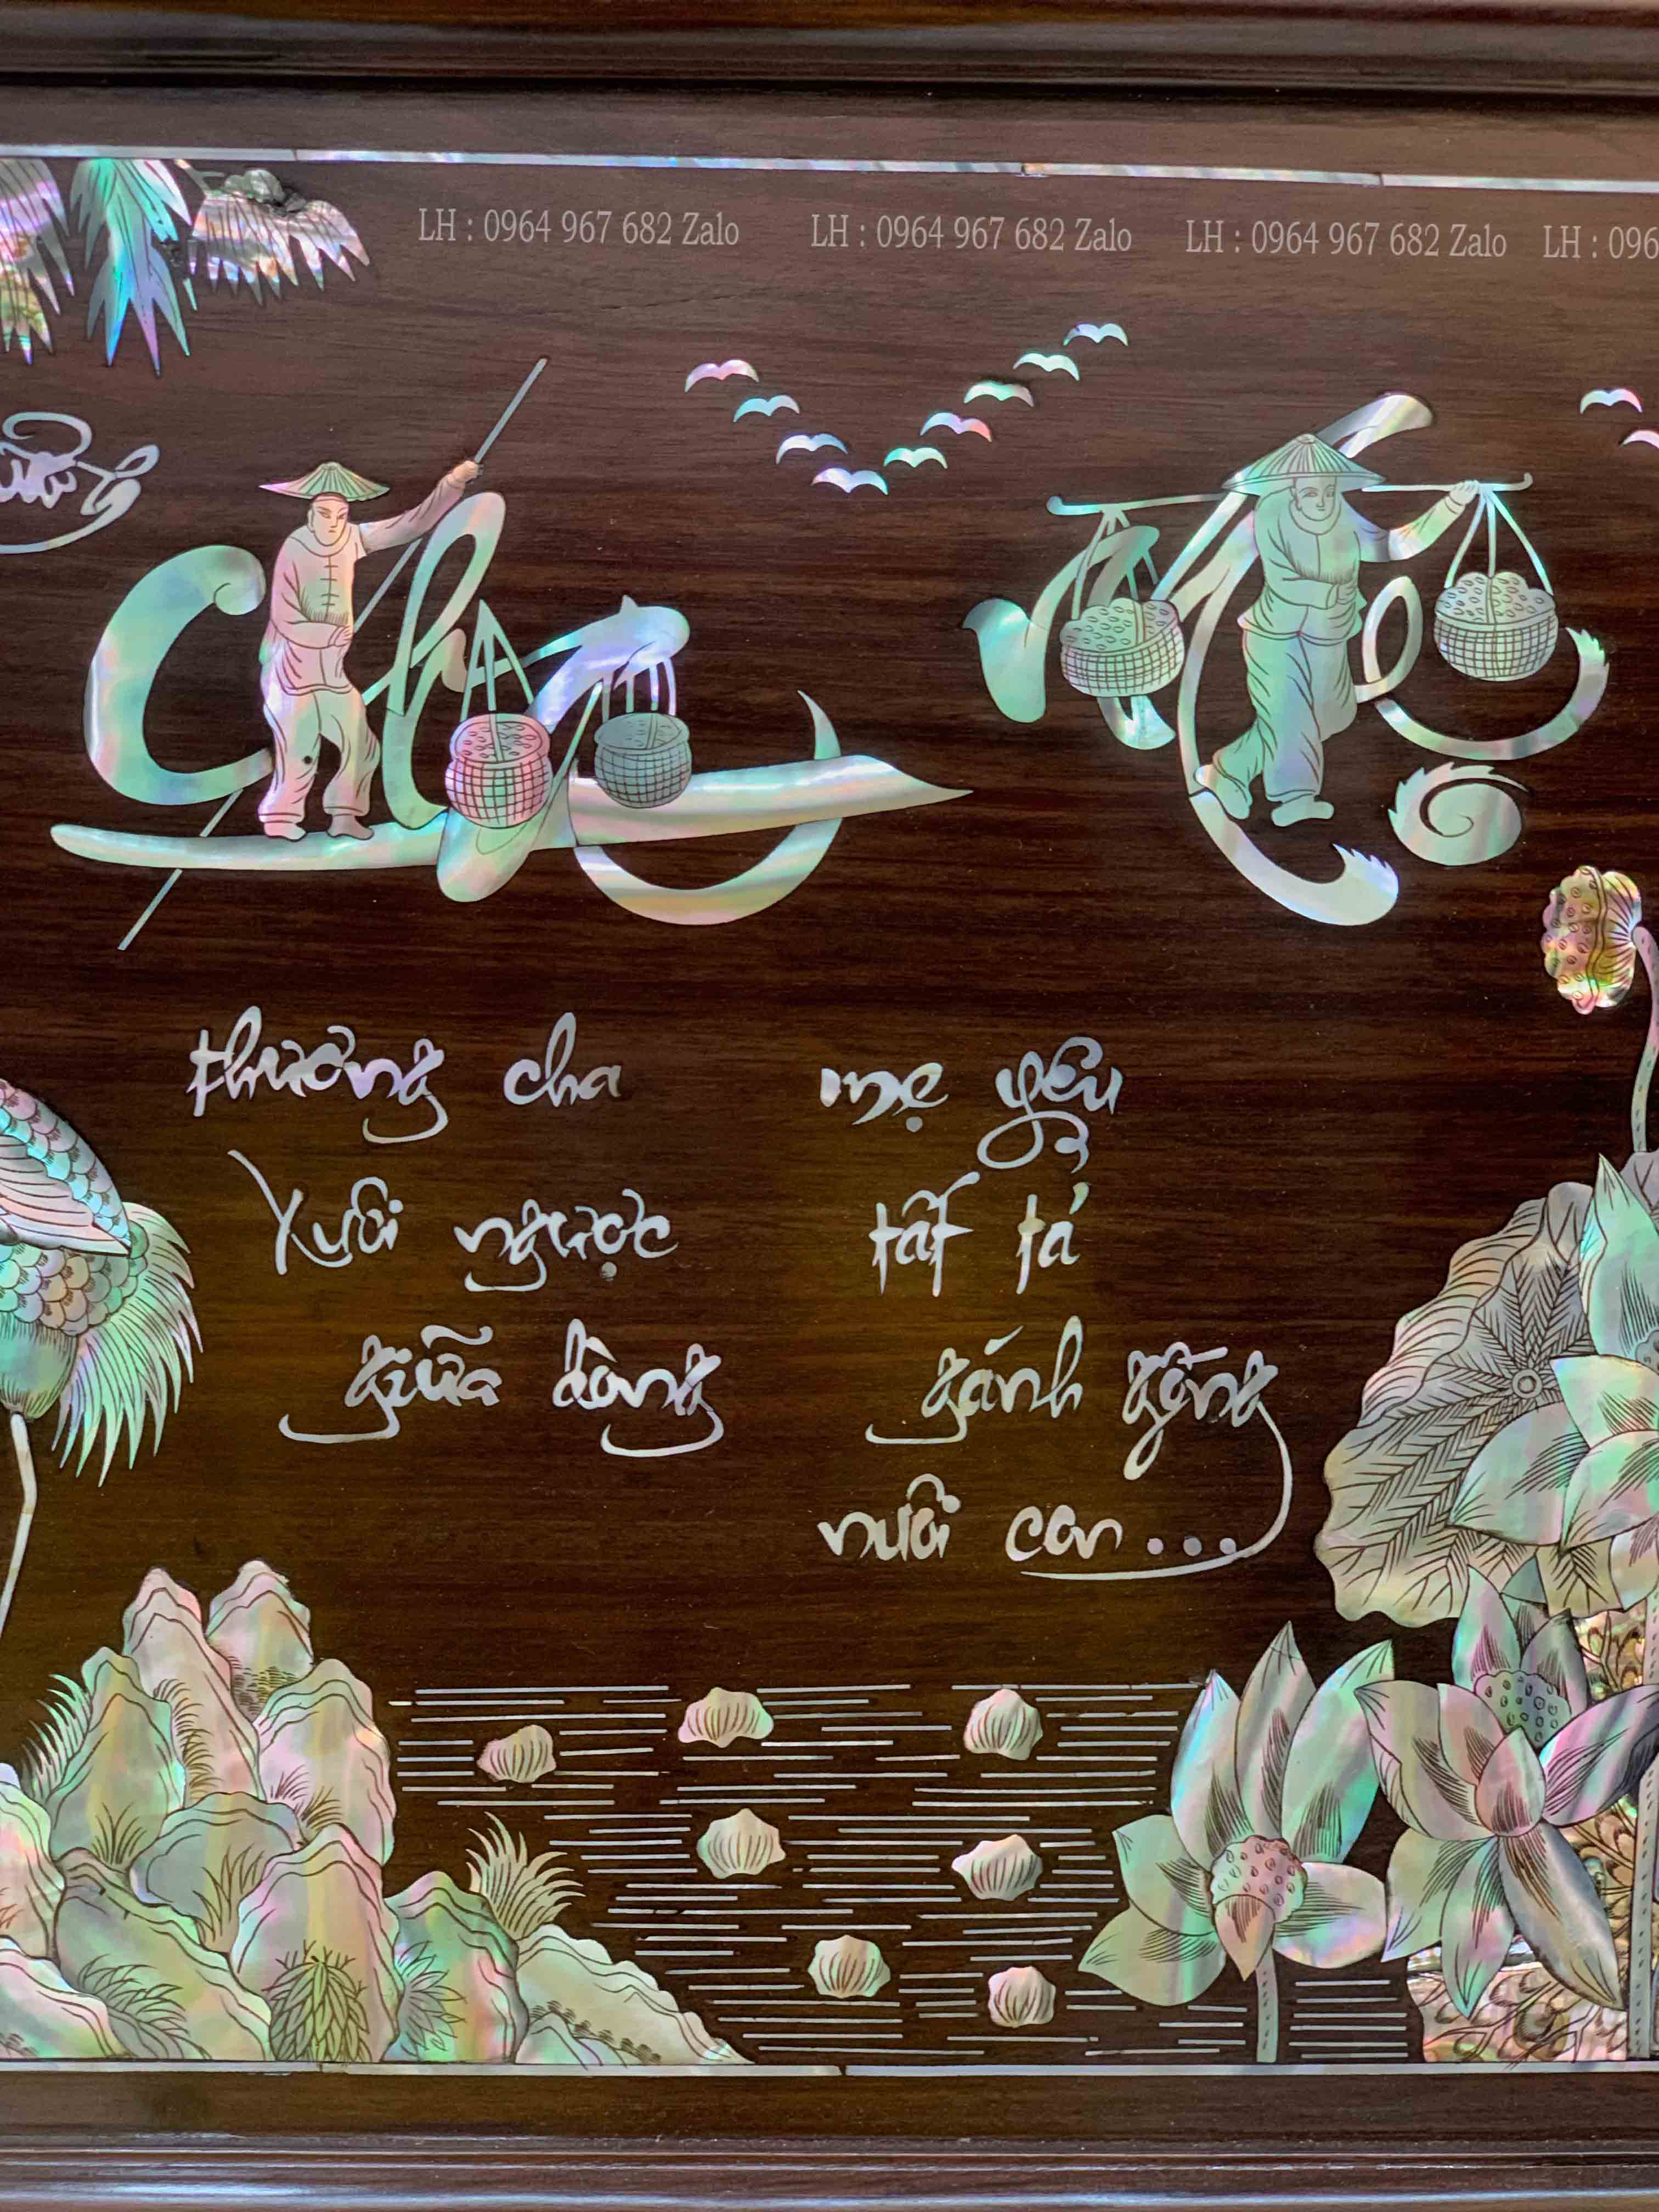 LH : 0964 967 682 Zalo LH : 0964 967 682 Zalo LH : 0964 967 682 Zalo LH : 096
Cha Mẹ
thương cha
xuôi ngược
giữa dòng
mẹ yêu
tất tả
gánh gồng
nuôi con...